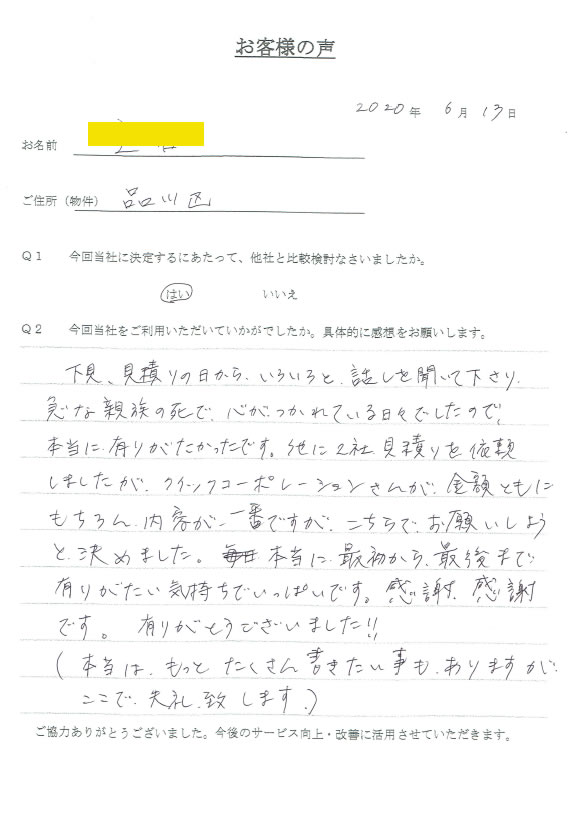 お客様の声
2020年 6月 13日
お名前
ご住所（物件） 品川区
Ｑ１ 今回当社に決定するにあたって、他社と比較検討なさいましたか。
はい いいえ
Ｑ２ 今回当社をご利用いただいていかがでしたか。具体的に感想をお願いします。
下見、見積りの日から、いろいろと、話しを聞いて下さり、
急な親族の死で、心がつかれている日々でしたので、
本当に有りがたかったです。他に2社見積りを依頼
しましたが、クイックコーポレーションさんが、金額ともに
もちろん、内容が、一番ですが、こちらで、お願いしよう
と、決めました。本当に、最初から、最後まで
有りがたい気持ちでいっぱいです。感謝、感謝
です。 有りがとうございました!!
(本当は、もっと たくさん書きたい事も、ありますが、
ここで、失礼、致します。)
ご協力ありがとうございました。今後のサービス向上・改善に活用させていただきます。